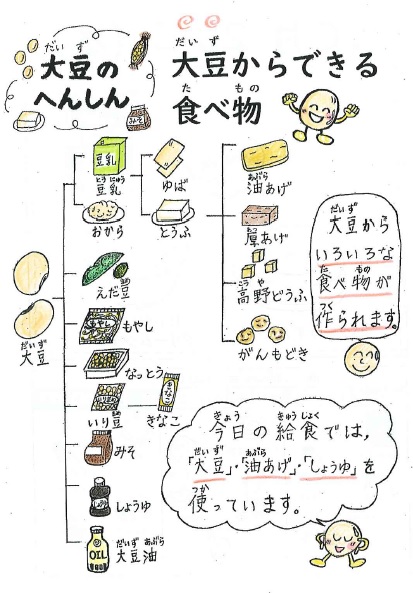 大豆の
へんしん
だいず
みそ
大豆からできる
だいず
食べ物
た もの
豆乳
豆乳
とうにゅう
おから
ゆば
とうふ
油あげ
あぶら
厚あげ
高野どうふ
こうや
がんもどき
大豆
だいず
えだ豆
もやし
もやし
なっとう
いり豆
きなこ
きなこ
みそ
しょうゆ
OIL
大豆油
だいず あぶら
大豆から
だいず
いろいろな
食べ物が
た もの
作られます。
つく
今日の給食では,
きょう きゅうしょく
「大豆」・「油あげ」・「しょうゆ」を
だいず あぶら
使っています。
つか